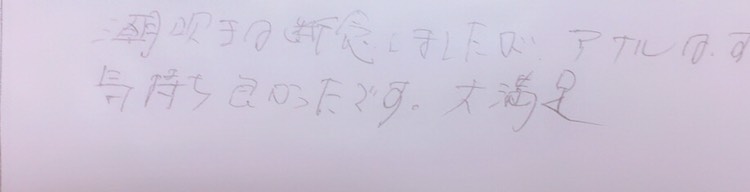 潮吹きは断念しましたが、アナルは、す
気持ち良かったです。大満足